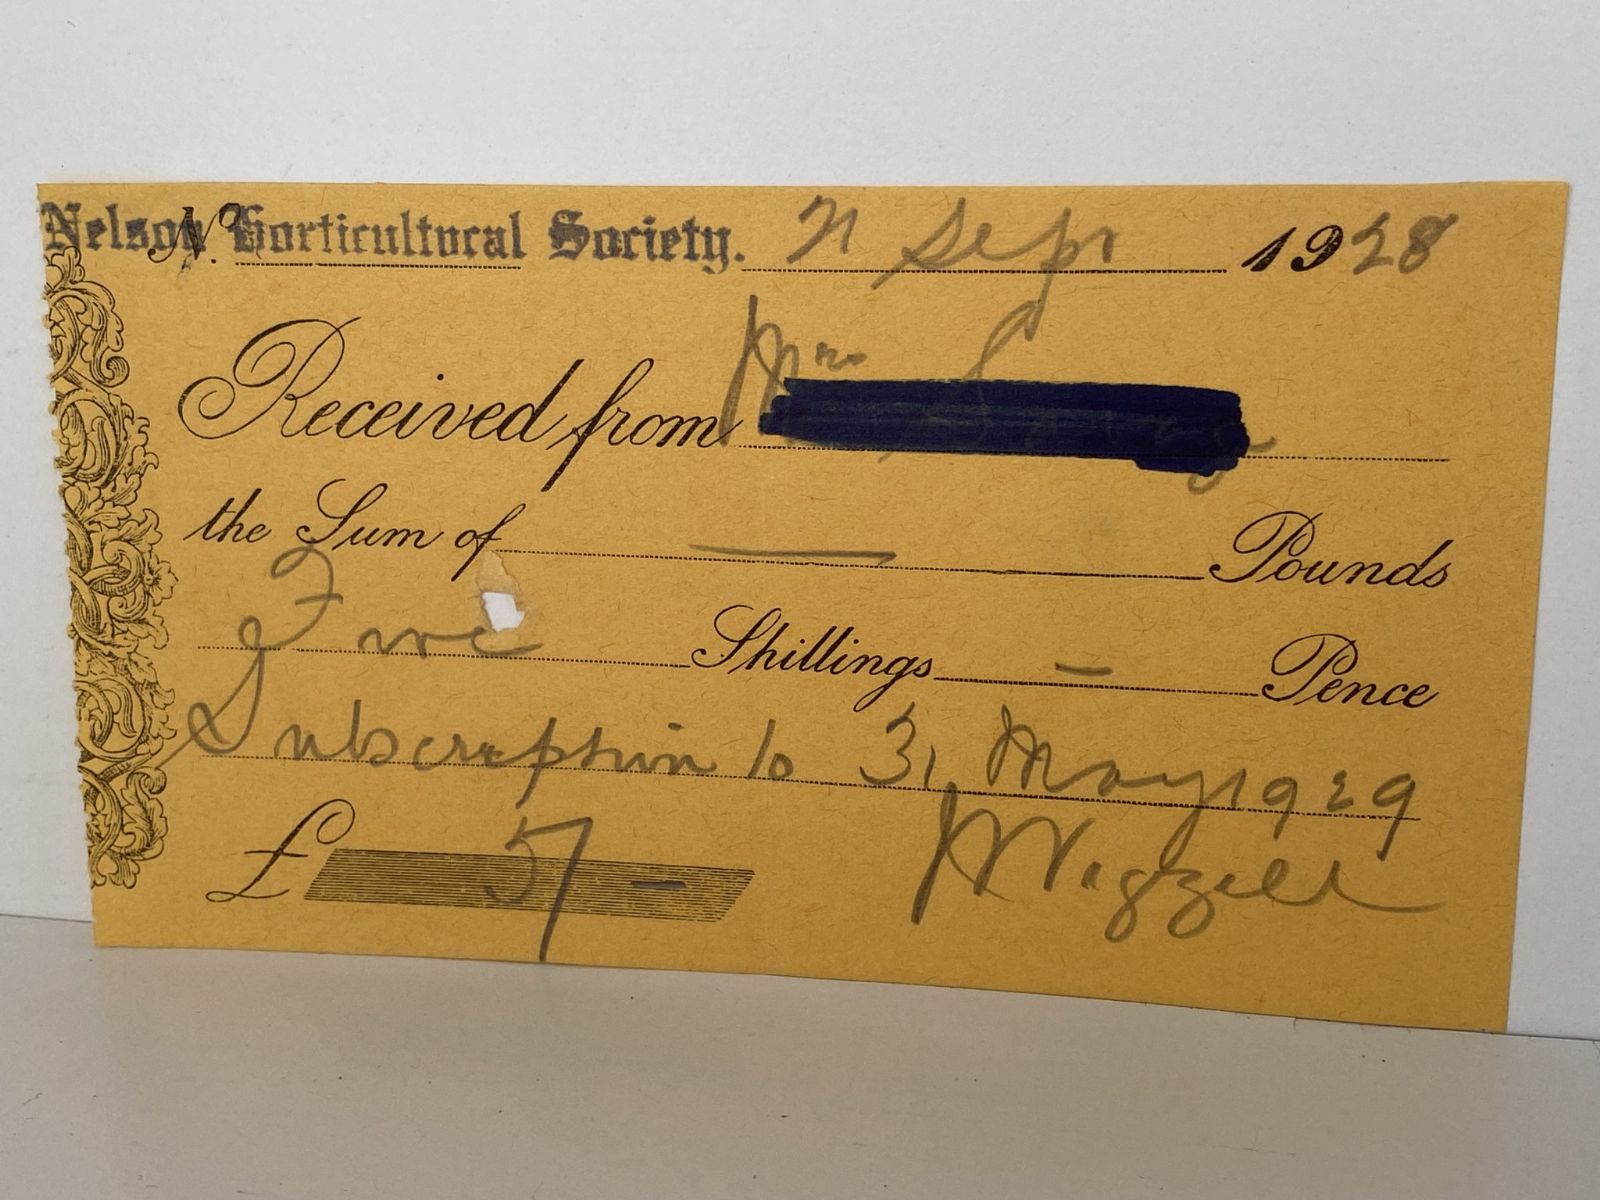 Nelson Horticultural Society.
No. 21 Sept 1928
Received from Mrs
the Sum of — Pounds
Five Shillings - Pence
Subscription to 31 May 1929
£ 5/-